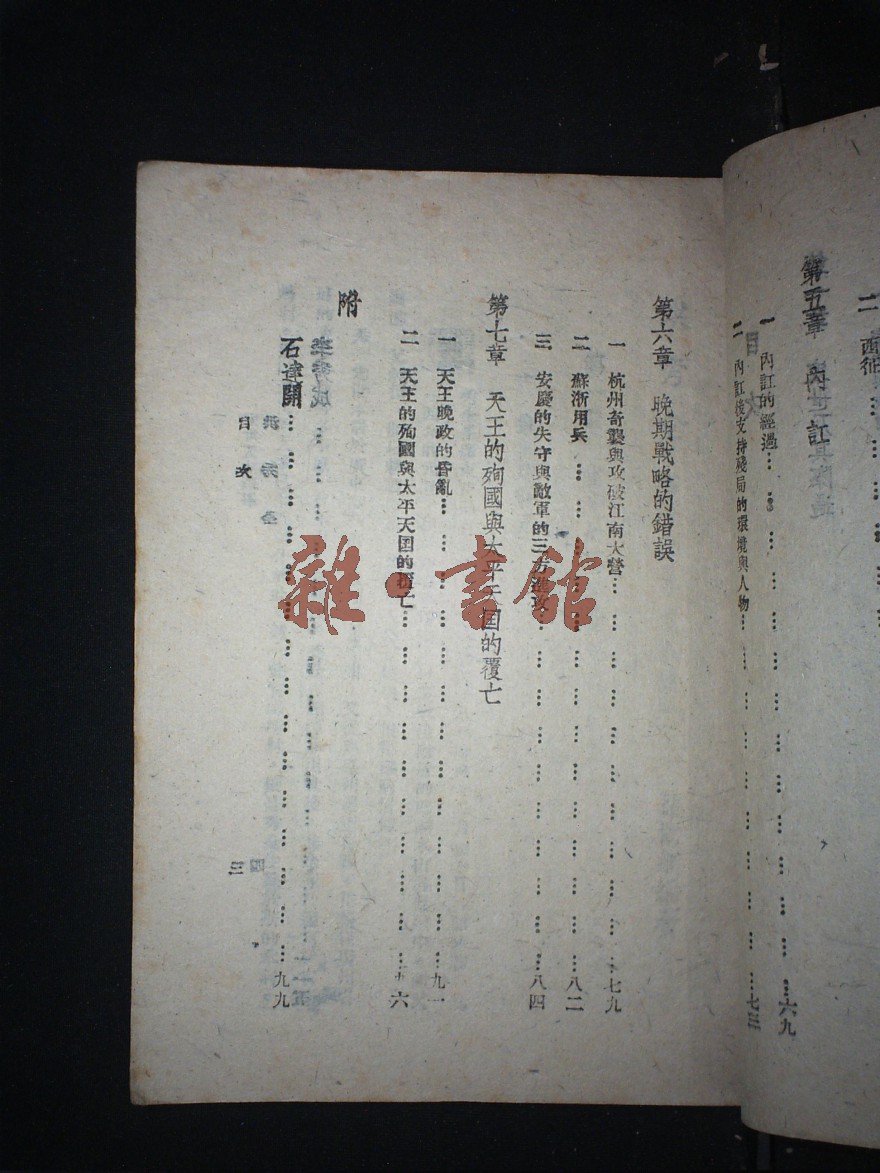 二 西征
第五章 內訌
一 內訌的經過……六九
二 內訌後支持殘局的環境與人物……七三
第六章 晚期戰略的錯誤
一 杭州奇襲與攻破江南大營……七九
二 蘇浙用兵……八二
三 安慶的失守與敵軍的三方進攻……八四
第七章 天王的殉國與太平天国的覆亡
一 天王晚政的昏亂……九一
二 天王的殉國與太平天国的覆亡……九六
附
石達開……九九
目次
三
雜·書館